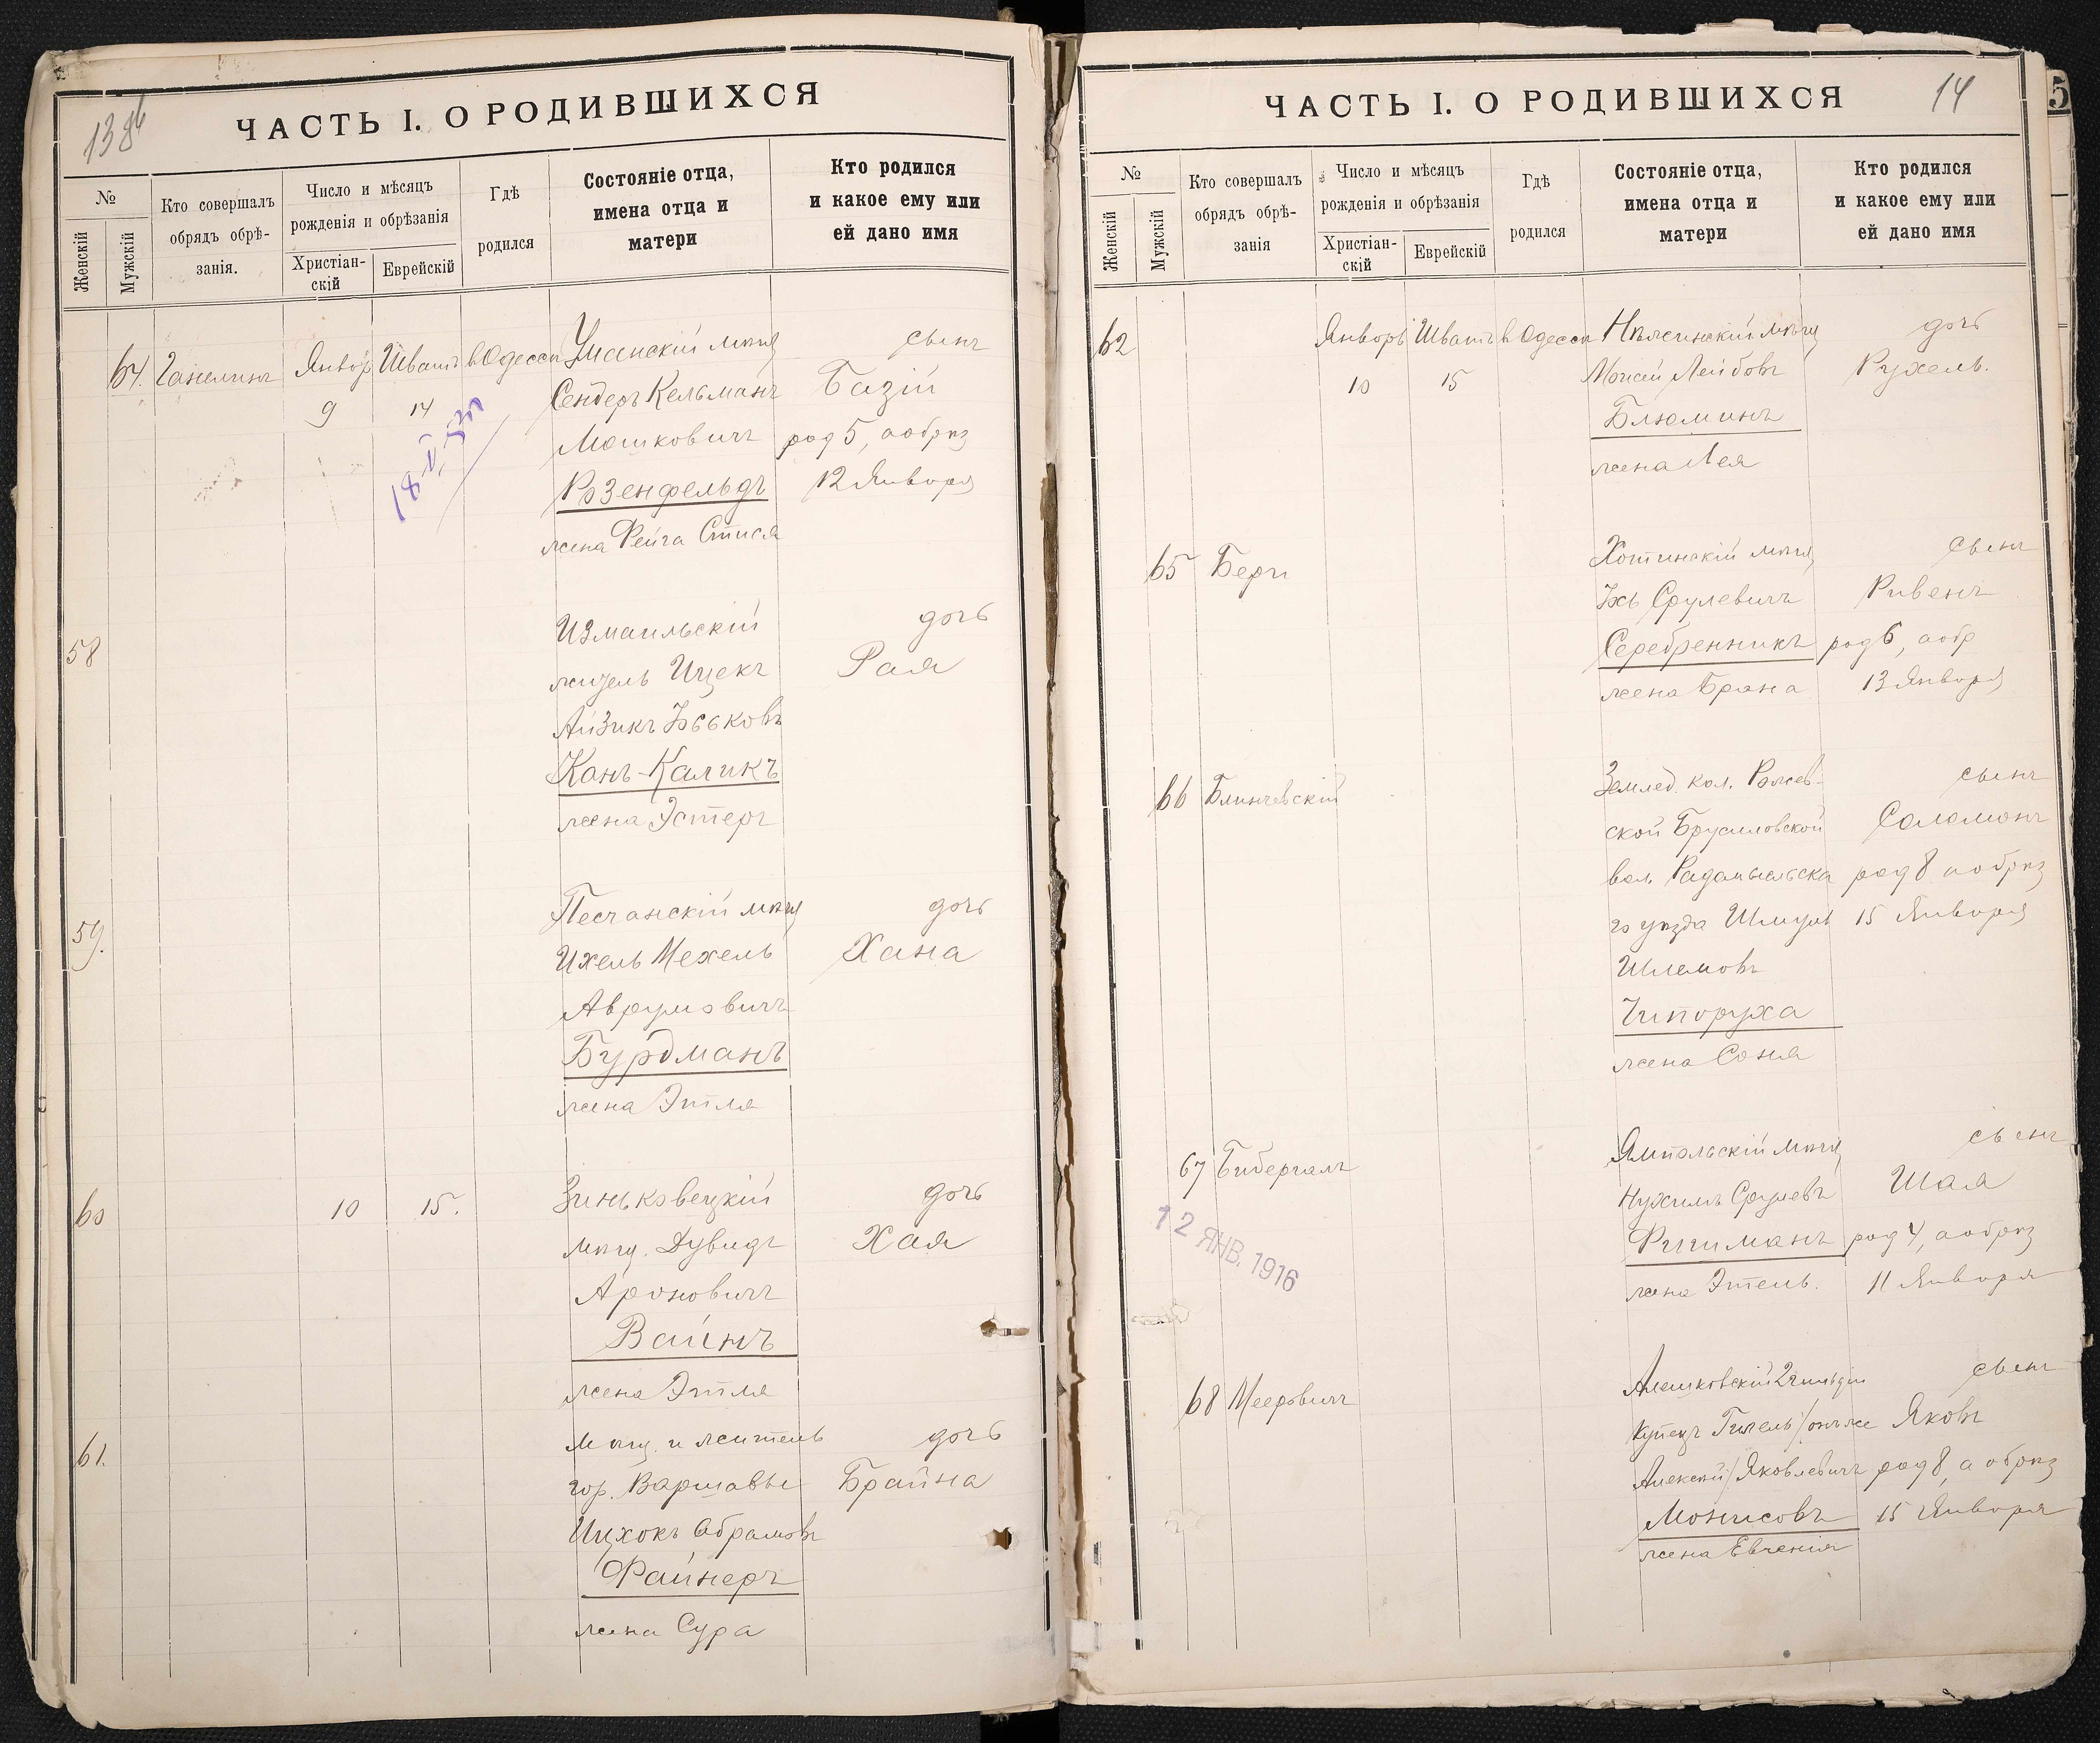 138
ЧАСТЬ I. О РОДИВШИХСЯ
№
Женскій
Мужскій
Кто совершалъ
обрядъ обрѣ-
занія.
Число и мѣсяцъ
рожденія и обрѣзанія
Христіан-
скій
Еврейскій
Гдѣ
родился
Состояніе отца,
имена отца и
матери
Кто родился
и какое ему или
ей дано имя
64. Январ Шватъ в Одессѣ Уманскій мѣщ сынъ
9 14 Сендеръ Кельманъ Базій
Мошковичъ род 5, а обрѣз
Розенфельдъ 12 Января
жена Фейга
18-V-
58 Измаильскій дочь
житель Ицекъ Рая
Айзикъ Іоськовъ
Канъ-Каликъ
жена Эстеръ
59. Песчанскій мѣщ дочь
Ихель Мехель Хана
Аврумовичъ
Бурдманъ
жена Этля
60 10 15. Зиньковецкій дочь
мѣщ. Дувидъ Хая
Ароновичъ
Вайнъ
жена Этля
61. мѣщ. и житель дочь
гор. Варшавы Брайна
Ицхокъ Абрамовъ
Файнеръ
жена Сура
14
ЧАСТЬ I. О РОДИВШИХСЯ
№
Женскій
Мужскій
Кто совершалъ
обрядъ обрѣ-
занія
Число и мѣсяцъ
рожденія и обрѣзанія
Христіан-
скій
Еврейскій
Гдѣ
родился
Состояніе отца,
имена отца и
матери
Кто родился
и какое ему или
ей дано имя
62 Январь Шватъ в Одессѣ мѣщ дочь
10 15 Моисей Лейбовъ Рухель.
Блюминъ
жена Лея
65 Бери Хотинскій мѣщ сынъ
Сруlевичъ Рувенъ
Серебренникъ род 6, а обр
жена Брана 13 Января
66 Блинчевскій Землед. кол. Рожев- сынъ
ской Брусиловской Соломонъ
вол. Радомысльска род 8 а обрѣз
го уѣзда Шмуль 15 Января
Шлемовъ
Чипоруха
жена Соня
67 Бибергалъ Ямпольскій мѣщ сынъ
Нухимъ Срулевъ Шая
род 4, а обрѣз
жена Этель. 11 Января
12 ЯНВ. 1916
68 Мееровичъ Алешковскій 2 гильдіи сынъ
купецъ Гилель /онъ же Яковъ
Алексѣй/ Яковлевичъ род 8, а обрѣз
Монисовъ 15 Января
жена Евгенія